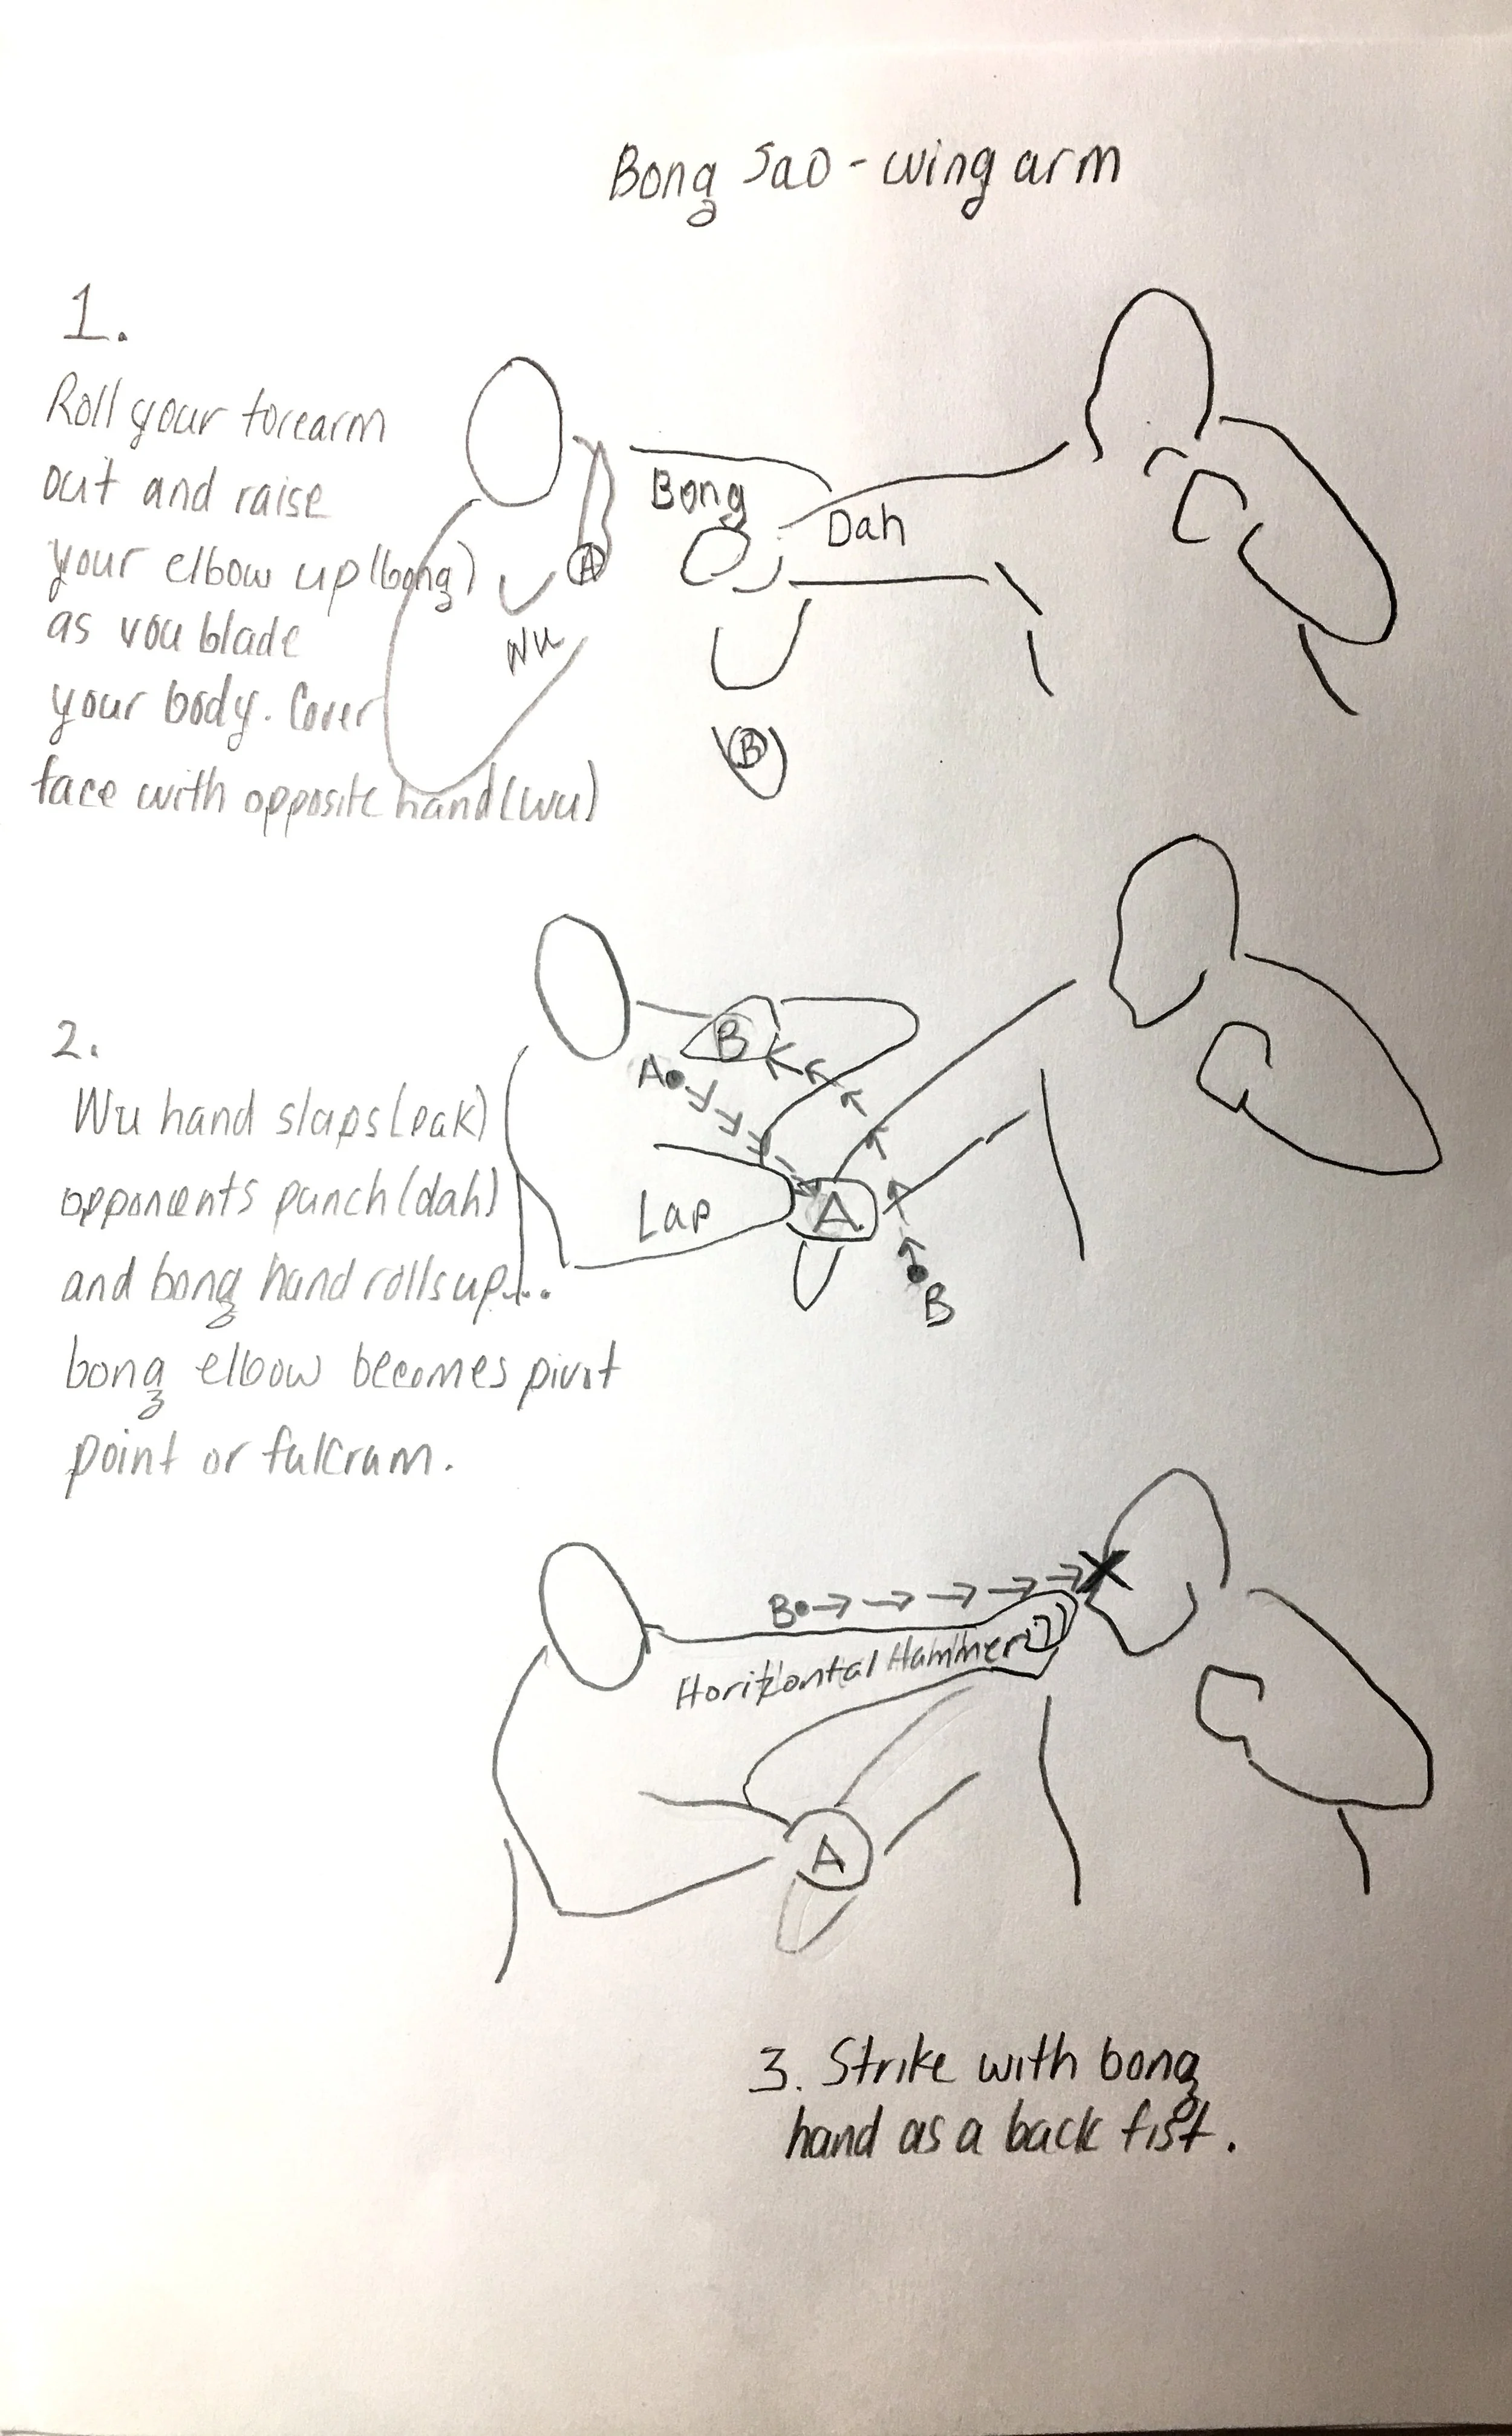 Bong Sao - wing arm
1.
Roll your forearm
out and raise
your elbow up (bong)
as you blade
your body. Cover
face with opposite hand (wu)
Bong
Dah
A
Wu
B
2.
Wu hand slaps (pak)
opponents punch (dah)
and bong hand rolls up...
bong elbow becomes pivot
point or fulcram.
B
A
Lap
A
B
B
Horizontal Hammer
A
3. Strike with bong
hand as a back fist.